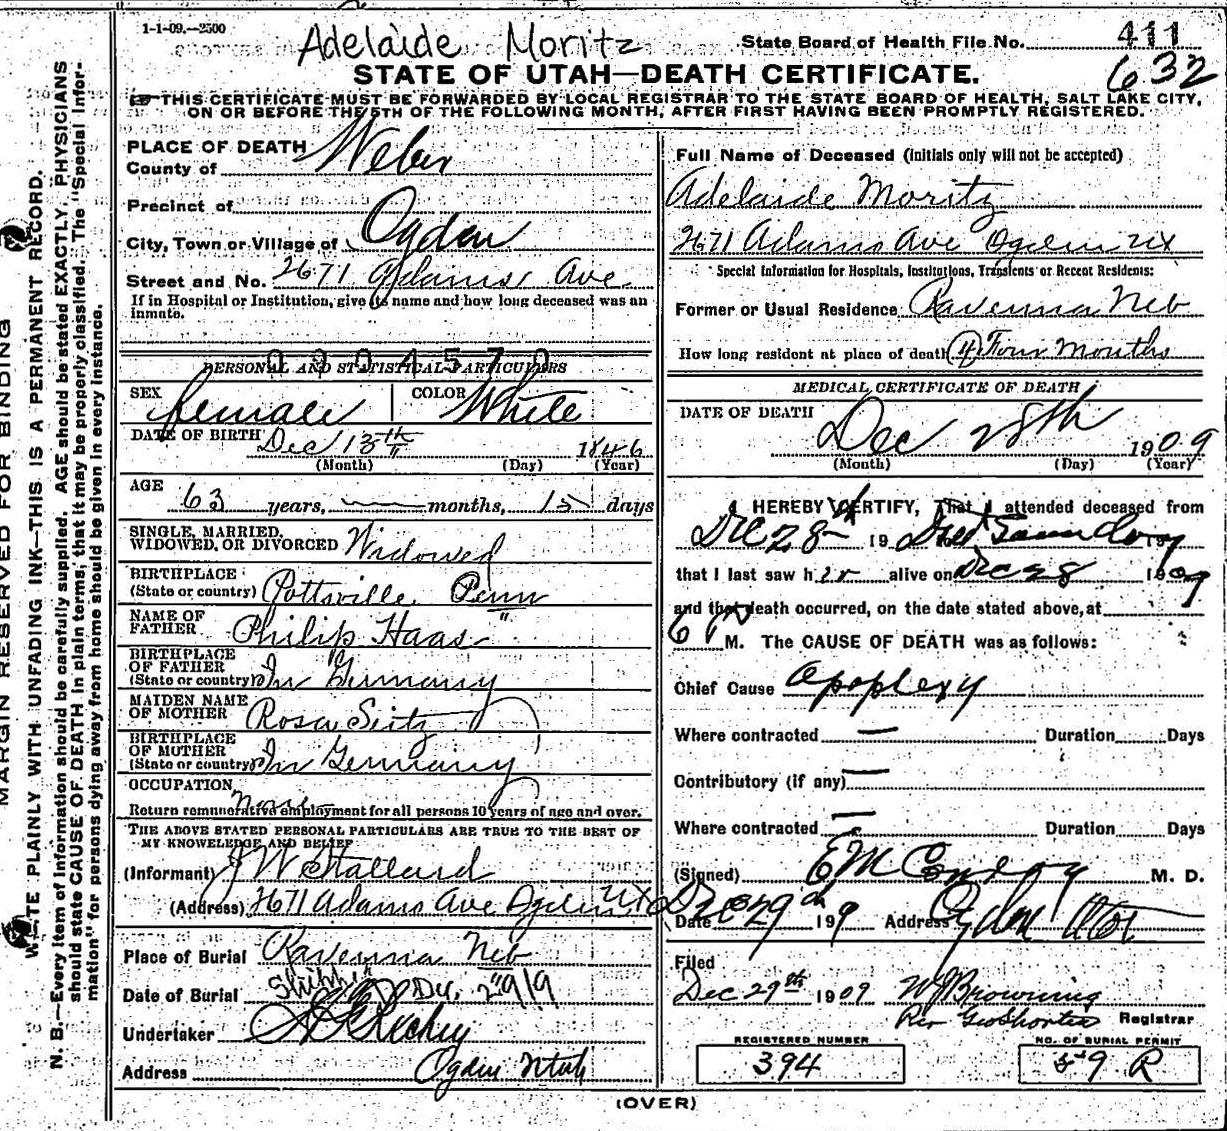 1-1-09.—2500
Adelaide Moritz
State Board of Health File No. 411
632
STATE OF UTAH—DEATH CERTIFICATE.
THIS CERTIFICATE MUST BE FORWARDED BY LOCAL REGISTRAR TO THE STATE BOARD OF HEALTH, SALT LAKE CITY,
ON OR BEFORE THE 5TH OF THE FOLLOWING MONTH, AFTER FIRST HAVING BEEN PROMPTLY REGISTERED.
MARGIN RESERVED FOR BINDING
WRITE PLAINLY WITH UNFADING INK—THIS IS A PERMANENT RECORD.
N. B.—Every item of information should be carefully supplied. AGE should be stated EXACTLY, PHYSICIANS
should state CAUSE OF DEATH in plain terms, that it may be properly classified. The "Special Infor-
mation" for persons dying away from home should be given in every instance.
PLACE OF DEATH
County of Weber
Precinct of
City, Town or Village of Ogden
Street and No. 2671 Adams Ave
If in Hospital or Institution, give its name and how long deceased was an
inmate.
PERSONAL AND STATISTICAL PARTICULARS
SEX female COLOR White
DATE OF BIRTH Dec 13th 1846
(Month) (Day) (Year)
AGE
63 years, months, 15 days
SINGLE, MARRIED,
WIDOWED, OR DIVORCED Widowed
BIRTHPLACE
(State or country) Pottsville Penn
NAME OF
FATHER Philip Haas
BIRTHPLACE
OF FATHER
(State or country) In Germany
MAIDEN NAME
OF MOTHER Rosa Seitz
BIRTHPLACE
OF MOTHER
(State or country) In Germany
OCCUPATION
None
Return remunerative employment for all persons 10 years of age and over.
THE ABOVE STATED PERSONAL PARTICULARS ARE TRUE TO THE BEST OF
MY KNOWELEDGE AND BELIEF
(Informant) J W Stallard
(Address) 2671 Adams Ave Ogden
Place of Burial Ravenna Neb
Date of Burial Dec. 29/9
Undertaker
Address Ogden Utah
Full Name of Deceased (initials only will not be accepted)
Adelaide Moritz
2671 Adams Ave Ogden
Special Information for Hospitals, Institutions, Transients or Recent Residents:
Former or Usual Residence Ravenna Neb
How long resident at place of death (4) Four Months
MEDICAL CERTIFICATE OF DEATH
DATE OF DEATH
Dec 28th 1909
(Month) (Day) (Year)
I HEREBY CERTIFY, That I attended deceased from
Dec 28th 19
that I last saw her alive on Dec 28 1909
and that death occurred, on the date stated above, at
6 P M. The CAUSE OF DEATH was as follows:
Chief Cause Apoplexy
Where contracted — Duration Days
Contributory (if any) —
Where contracted — Duration Days
(Signed) E M Conroy M. D.
Date Dec 29th 199 Address Ogden Utah
Filed
Dec 29th 1909 W J Browning
Per Geo Shorten Registrar
REGISTERED NUMBER
394
NO. OF BURIAL PERMIT
59 R
(OVER)